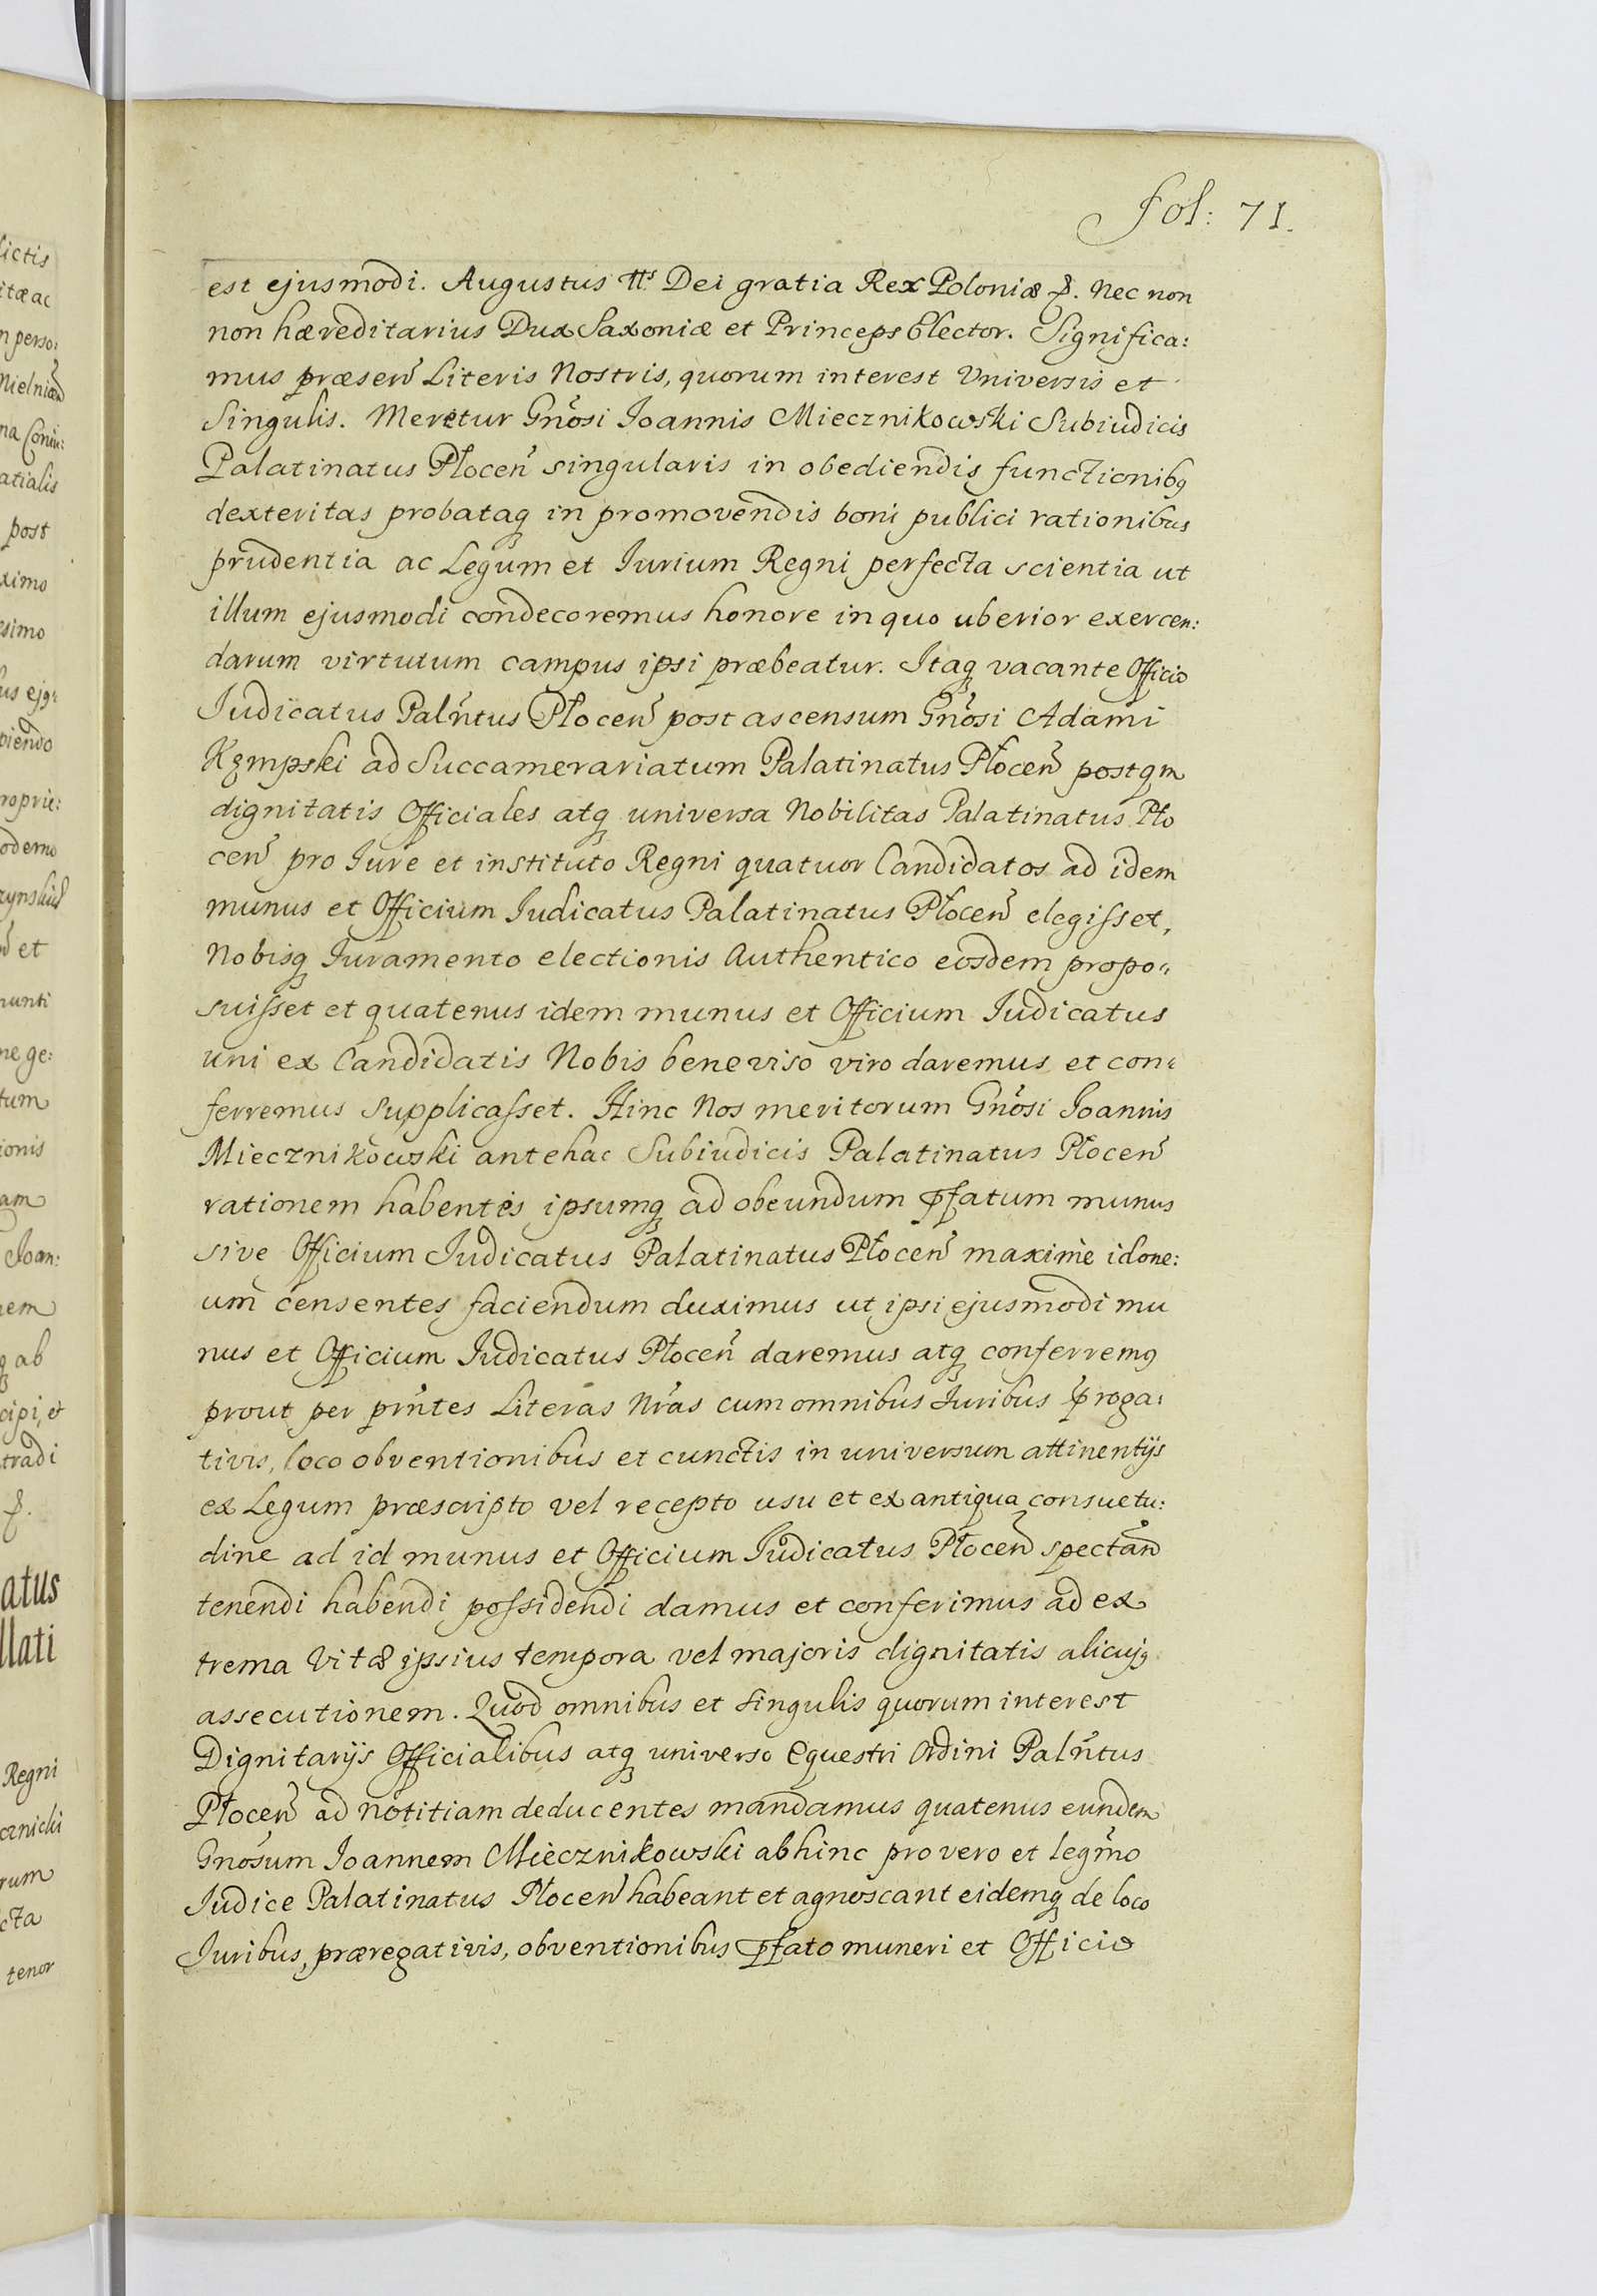 fol: 71.
est ejusmodi. Augustus IIs Dei gratia Rex Poloniæ &. Nec non
non hæreditarius Dux Saxoniæ et Princeps Elector. Significa:
mus præsen̄ Literis Nostris, quorum interest Universis et
Singulis. Meretur Gn̄osi Ioannis Miecznikowski Subiudicis
Palatinatus Płocen̄ singularis in obediendis functionibꝯ
dexteritas probataq́ꝫ in promovendis boni publici rationibus
prudentia ac Legum et Iurium Regni perfecta scientia ut
illum ejusmodi condecoremus honore in quo uberior exercen:
darum virtutum campus ipsi præbeatur. Itaqꝫ vacante Officio
Iudicatus Paln̄tus Płocen̄ post ascensum Gn̄osi Adami
Kęmpski ad Succamerariatum Palatinatus Płocen̄ postqm
dignitatis Officiales atqꝫ universa Nobilitas Palatinatus Pło
cen̄ pro Iure et instituto Regni quatuor Candidatos ad idem
munus et Officium Iudicatus Palatinatus Płocen̄ elegisset,
Nobisqꝫ Iuramento electionis Authentico eosdem propo:
suisset et quatenus idem munus et Officium Iudicatus
uni ex Candidatis Nobis beneviso viro daremus et con:
ferremus Supplicasset. Hinc Nos meritorum Gn̄osi Ioannis
Miecznikowski antehac Subiudicis Palatinatus Płocen̄
rationem habentes ipsumqꝫ ad obeundum p̄fatum munus
sive Officium Iudicatus Palatinatus Płocen̄ maxime idone:
um censentes faciendum duximus ut ipsi ejusmodi mu
nus et Officium Iudicatus Płocen̄ daremus atqꝫ conferremꝯ
prout per prn̄tes Literas Nr̄as cum omnibus Iuribus p̄roga:
tivis, loco obventionibus et cunctis in universum attinentijs
ex Legum præscripto vel recepto usu et ex antiqua consuetu:
dine ad id munus et Officium Iudicatus Płocen̄ spectan̄
tenendi habendi possidendi damus et conferimus ad ex
trema Vitæ ipsius tempora vel majoris dignitatis alicujꝯ
assecutionem. Quod omnibus et singulis quorum interest
Dignitarijs Officialibus atqꝫ universo Equestri Ordini Paln̄tus
Płocen̄ ad notitiam deducentes mandamus quatenus eundem
Gnōsum Ioannem Miecznikowski abhinc pro vero et legm̄o
Iudice Palatinatus Płocen̄ habeant et agnoscant eidemqꝫ de loco
Iuribus, præregativis, obventionibus p̄fato muneri et Officio